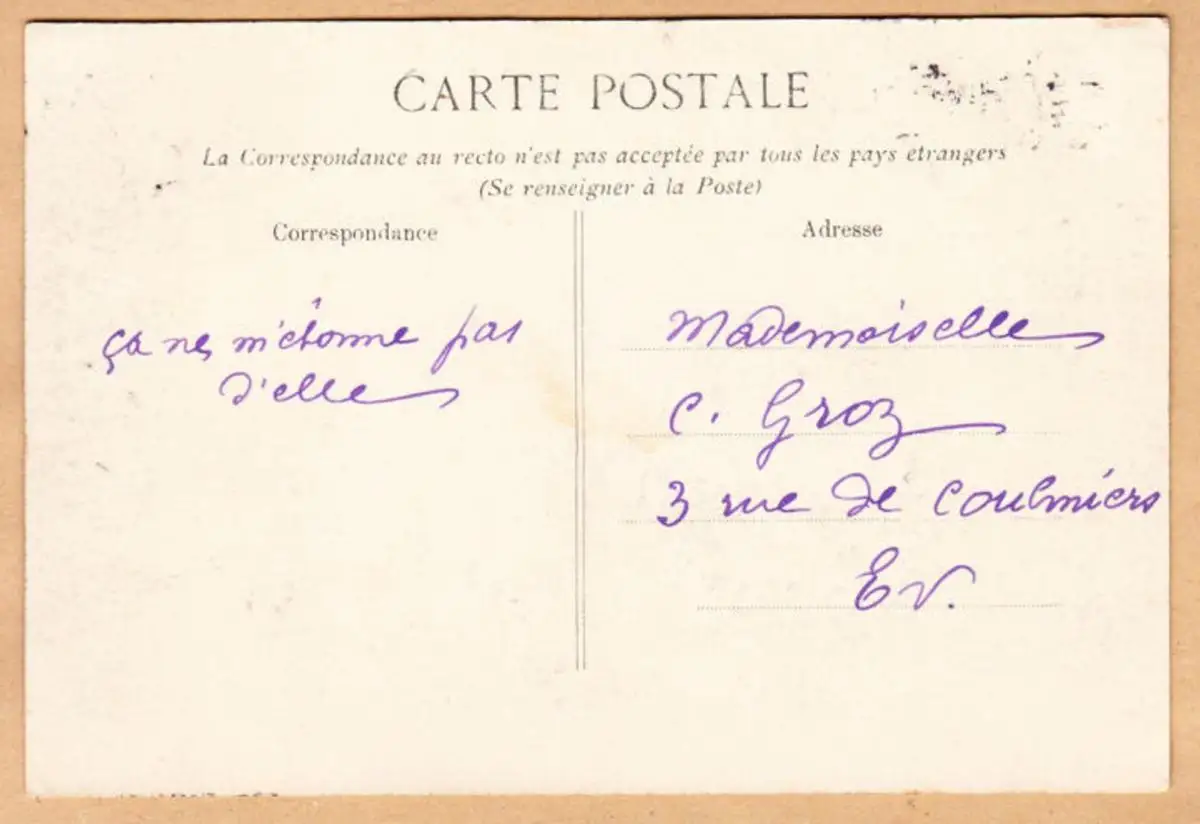 CARTE POSTALE
La Correspondance au recto n'est pas acceptée par tous les pays étrangers
(Se renseigner à la Poste)
Correspondance
ça ne m'étonne pas
d'elle
Adresse
Mademoiselle
C. Groz
3 rue de Coulmiers
Ev.